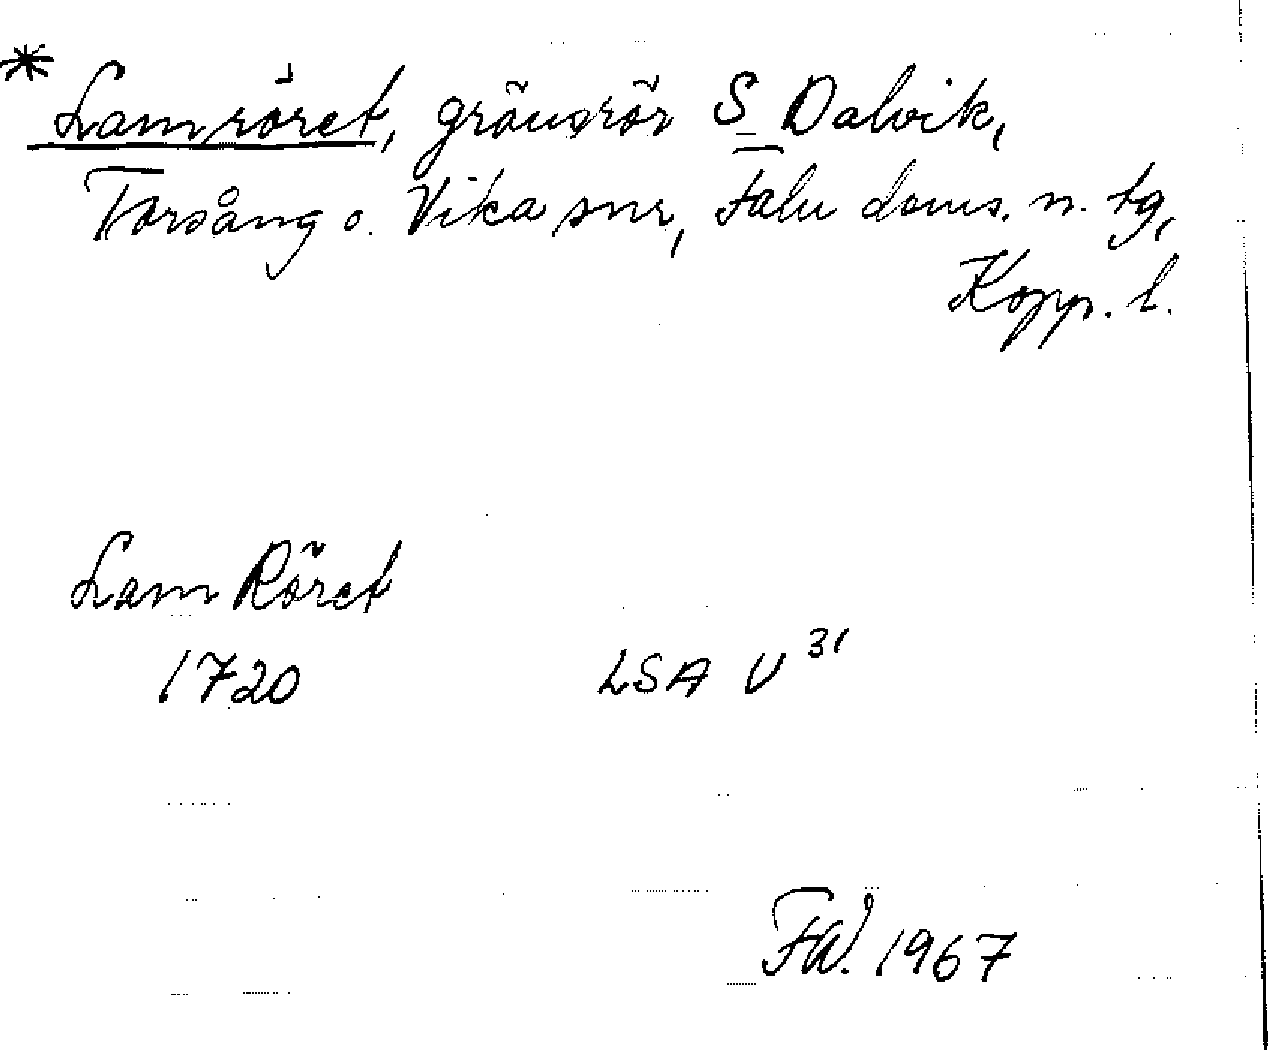 * Lamröret, gränsrör S Dalvik,
Torsång o. Vika snr, Falu doms. n. tg,
Kopp. l.
Lam Röret
1720 LSA U 31
FW. 1967